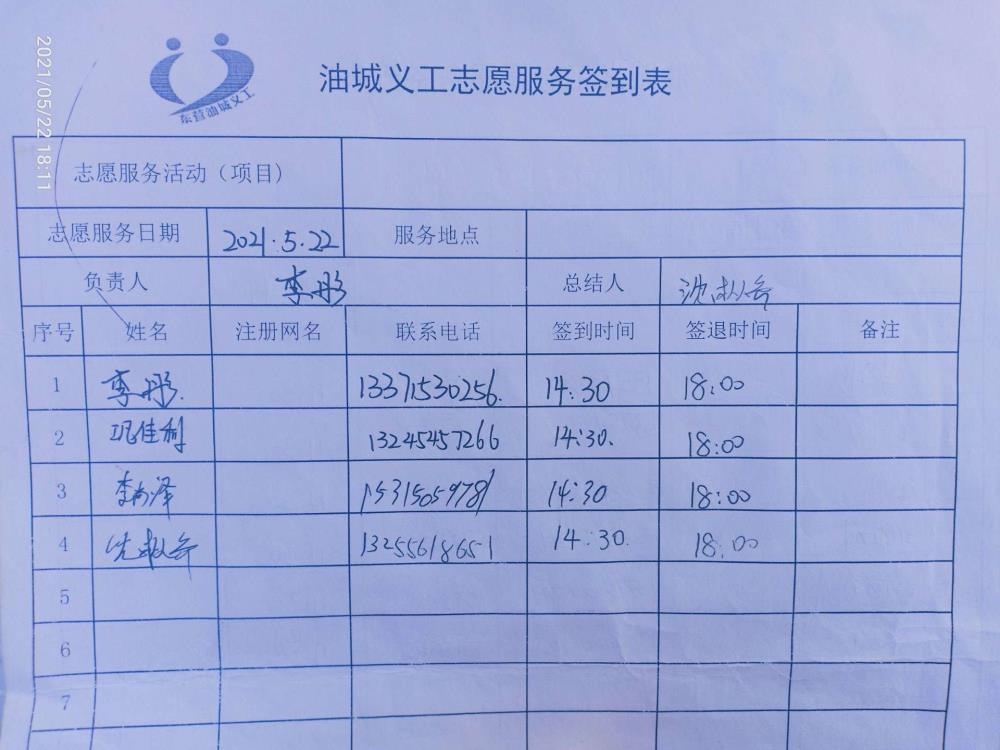 2021/05/22 18:11
东营油城义工
油城义工志愿服务签到表
志愿服务活动（项目）
志愿服务日期 2021.5.22 服务地点
负责人 李彤 总结人
序号 姓名 注册网名 联系电话 签到时间 签退时间 备注
1 李彤. 13371530256. 14:30 18:00
2 巩佳利 13245457266 14:30. 18:00
3 15315059781 14:30 18:00
4 13255618651 14:30. 18:00
5
6
7